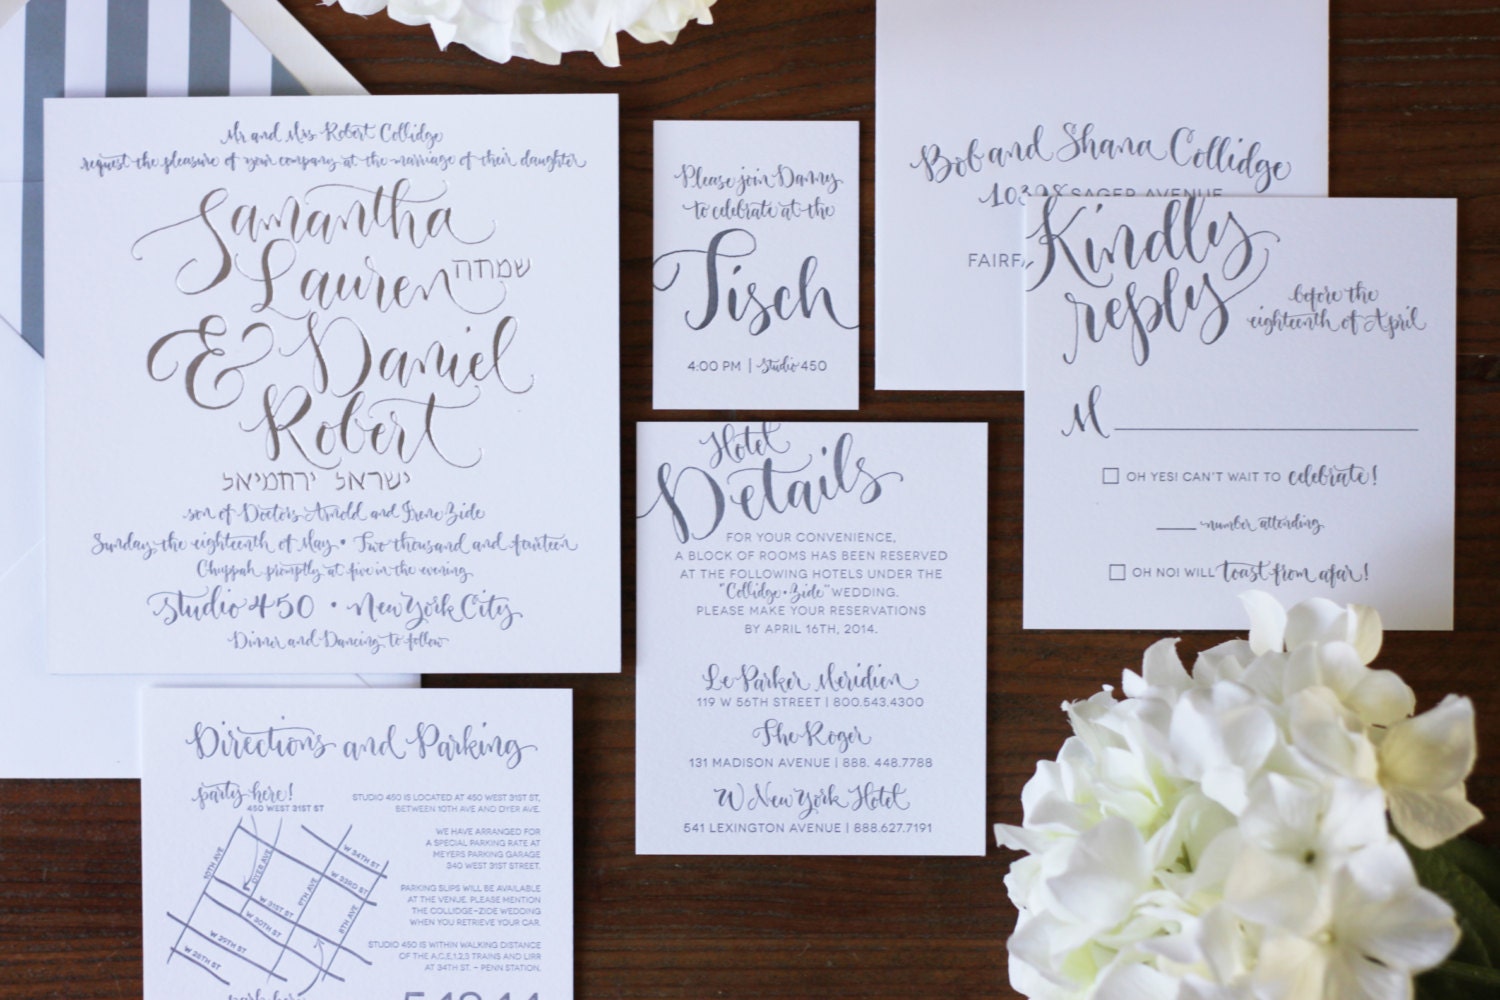 Mr and Mrs Robert Collidge
request the pleasure of your company at the marriage of their daughter
Samantha
Lauren
שמחה
& Daniel
Robert
ישראל ירחמיאל
son of Doctors Arnold and Irene Zide
Sunday, the eighteenth of May • Two thousand and fourteen
Chuppah promptly at five in the evening
Studio 450 • New York City
Dinner and Dancing to follow
Please join Danny
to celebrate at the
Tisch
4:00 PM | Studio 450
Bob and Shana Collidge
SAGER AVENUE
Kindly
reply
before the
eighteenth of April
M
OH YES! CAN'T WAIT TO celebrate!
number attending
OH NO! WILL toast from afar!
Hotel
Details
FOR YOUR CONVENIENCE,
A BLOCK OF ROOMS HAS BEEN RESERVED
AT THE FOLLOWING HOTELS UNDER THE
"Collidge • Zide" WEDDING.
PLEASE MAKE YOUR RESERVATIONS
BY APRIL 16TH, 2014.
Le Parker Meridien
119 W 56TH STREET | 800.543.4300
The Roger
131 MADISON AVENUE | 888. 448.7788
W New York Hotel
541 LEXINGTON AVENUE | 888.627.7191
Directions and Parking
party here!
450 WEST 31ST ST
10TH AVE
DYER AVE
9TH AVE
8TH AVE
W 34TH ST
W 33RD ST
W 31ST ST
W 30TH ST
W 29TH ST
W 28TH ST
park here
STUDIO 450 IS LOCATED AT 450 WEST 31ST ST,
BETWEEN 10TH AVE AND DYER AVE.
WE HAVE ARRANGED FOR
A SPECIAL PARKING RATE AT
MEYERS PARKING GARAGE
340 WEST 31ST STREET.
PARKING SLIPS WILL BE AVAILABLE
AT THE VENUE. PLEASE MENTION
THE COLLIDGE-ZIDE WEDDING
WHEN YOU RETRIEVE YOUR CAR.
STUDIO 450 IS WITHIN WALKING DISTANCE
OF THE A,C,E,1,2,3 TRAINS AND LIRR
AT 34TH ST. - PENN STATION.